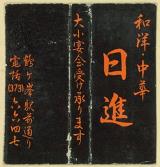 和洋中華
日進
大小宴会受け承ります
鈴ヶ峯駅前通り
電話(373)六六四七